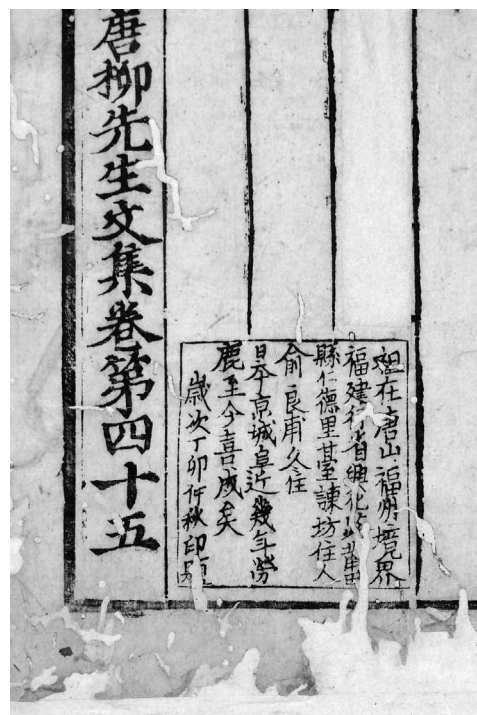 祖在唐山福州境界
福建行省興化路莆田
縣仁德里臺諫坊住人
俞良甫久住
日本京城阜近幾年勞
鹿至今喜成矣
歲次丁卯仲秋印題
唐柳先生文集卷第四十五